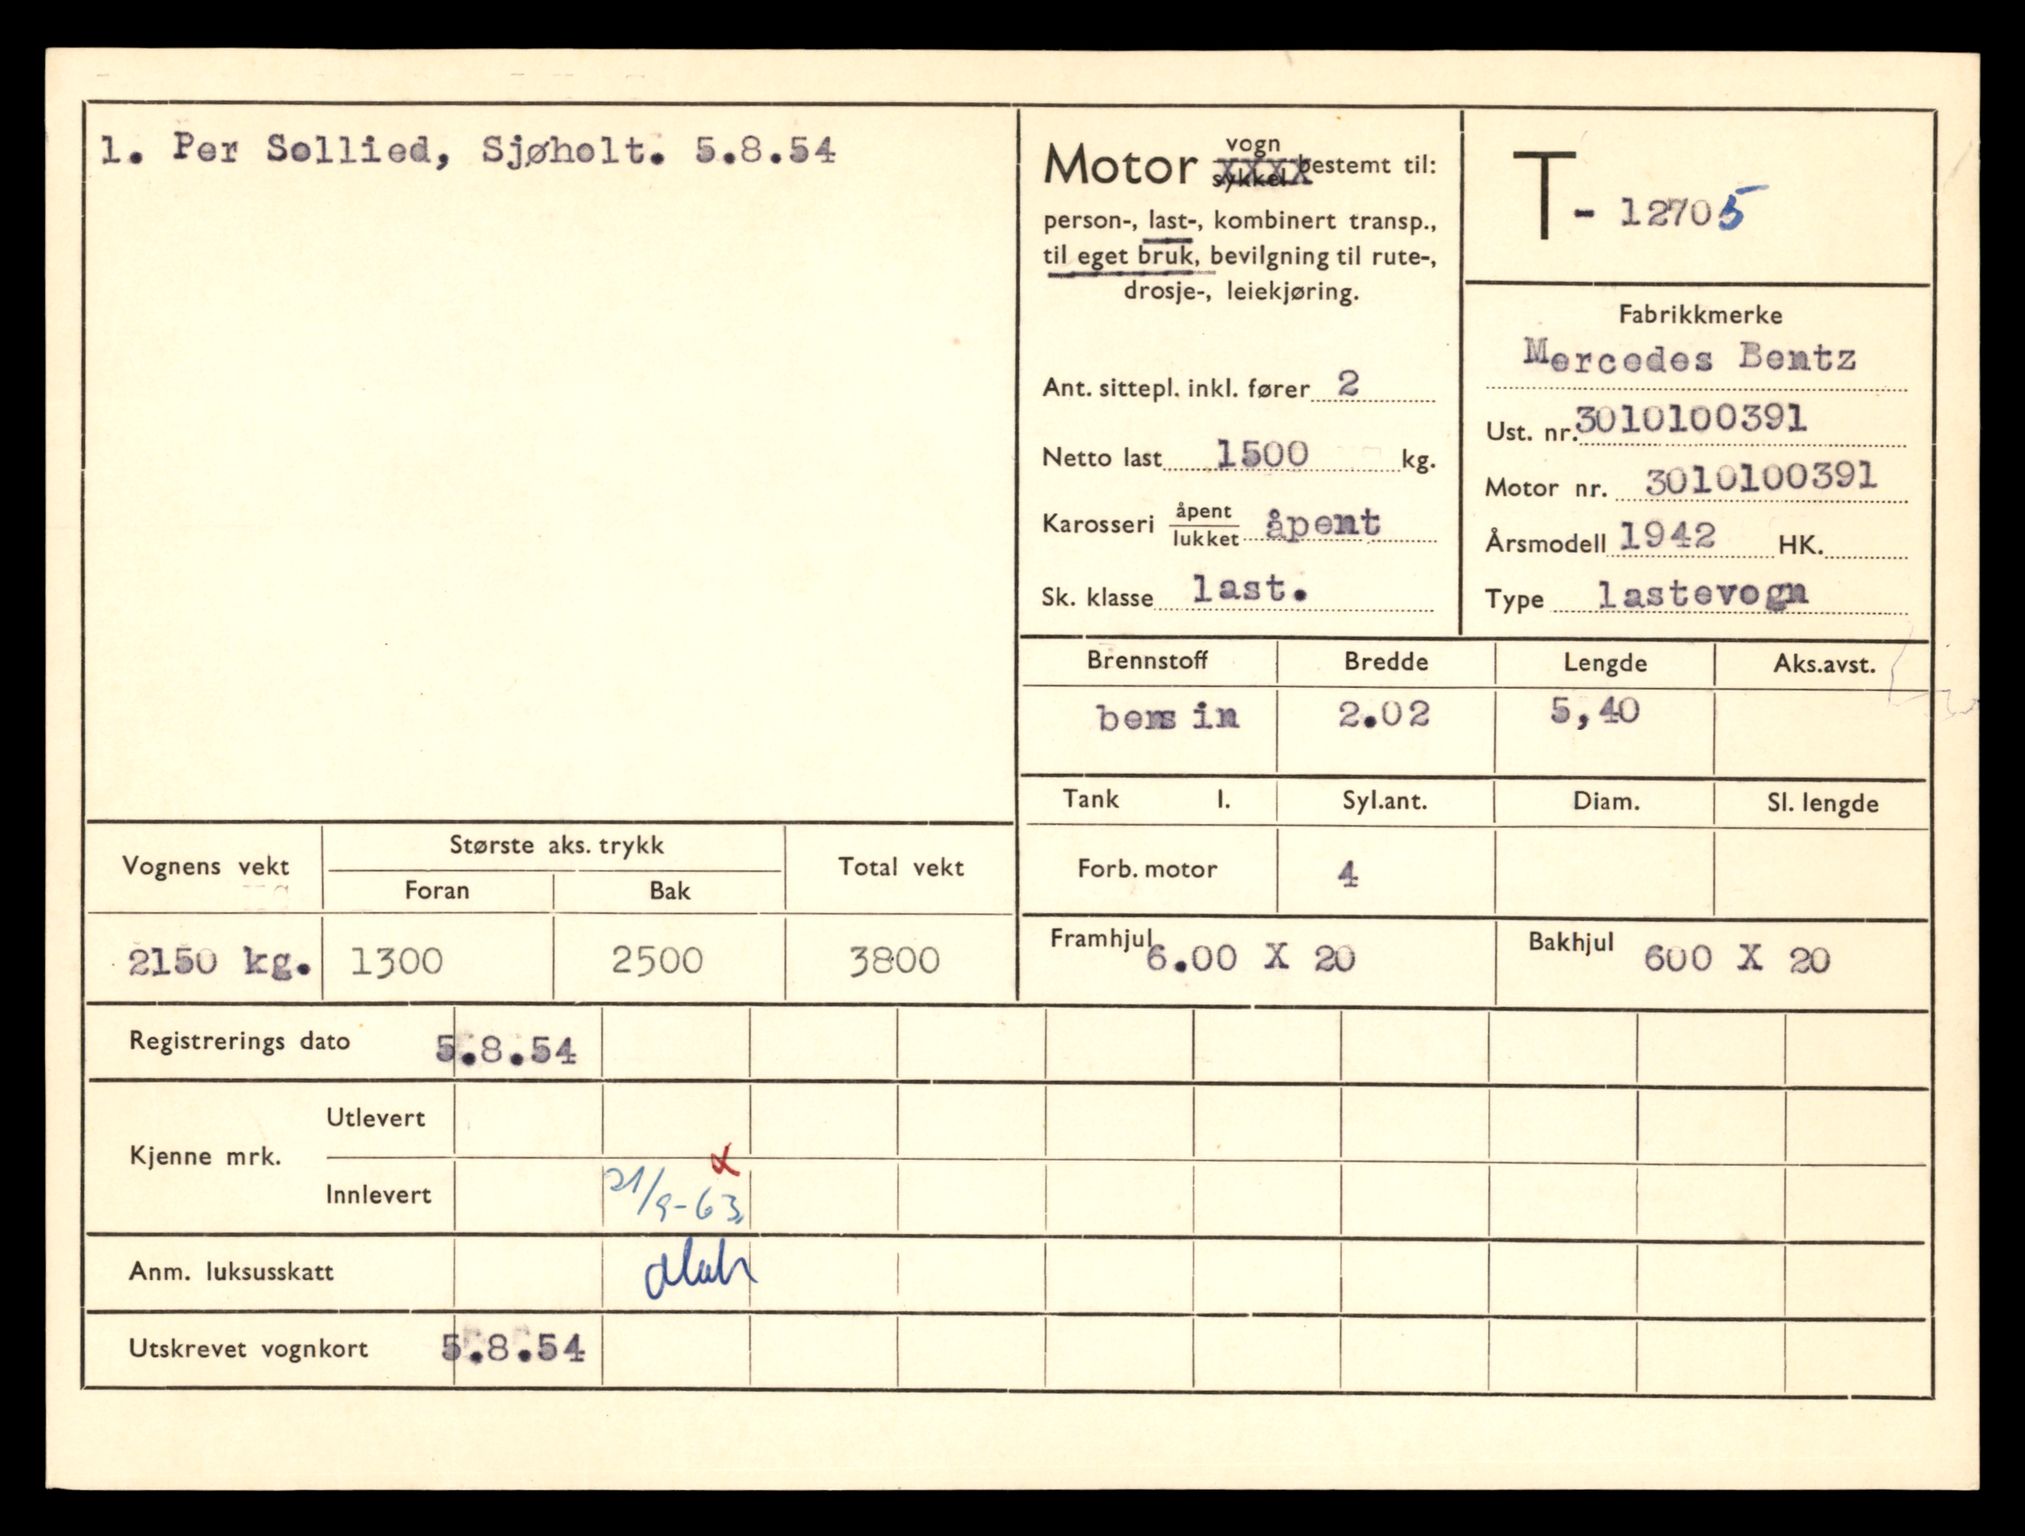 1. Per Sollied, Sjøholt. 5.8.54
Motor vogn
sykkel bestemt til:
person-, last-, kombinert transp.,
til eget bruk, bevilgning til rute-,
drosje-, leiekjøring.
Ant. sittepl. inkl. fører 2
Netto last 1500 kg.
Karosseri åpent
lukket åpent
Sk. klasse last.
T - 12705
Fabrikkmerke
Mercedes Bentz
Ust. nr. 3010100391
Motor nr. 3010100391
Årsmodell 1942 HK.
Type lastevogn
Brennstoff Bredde Lengde Aks.avst.
bensin 2.02 5,40
Tank l. Syl.ant. Diam. Sl. lengde
Forb. motor 4
Framhjul 6.00 X 20 Bakhjul 600 X 20
Vognens vekt Største aks. trykk Total vekt
Foran Bak
2150 kg. 1300 2500 3800
Registrerings dato 5.8.54
Kjenne mrk. Utlevert
Innlevert 21/9-63
Anm. luksusskatt
Utskrevet vognkort 5.8.54